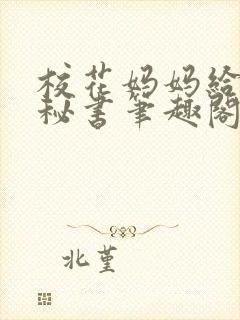 校花妈妈给
秘书笔趣阁
北堇